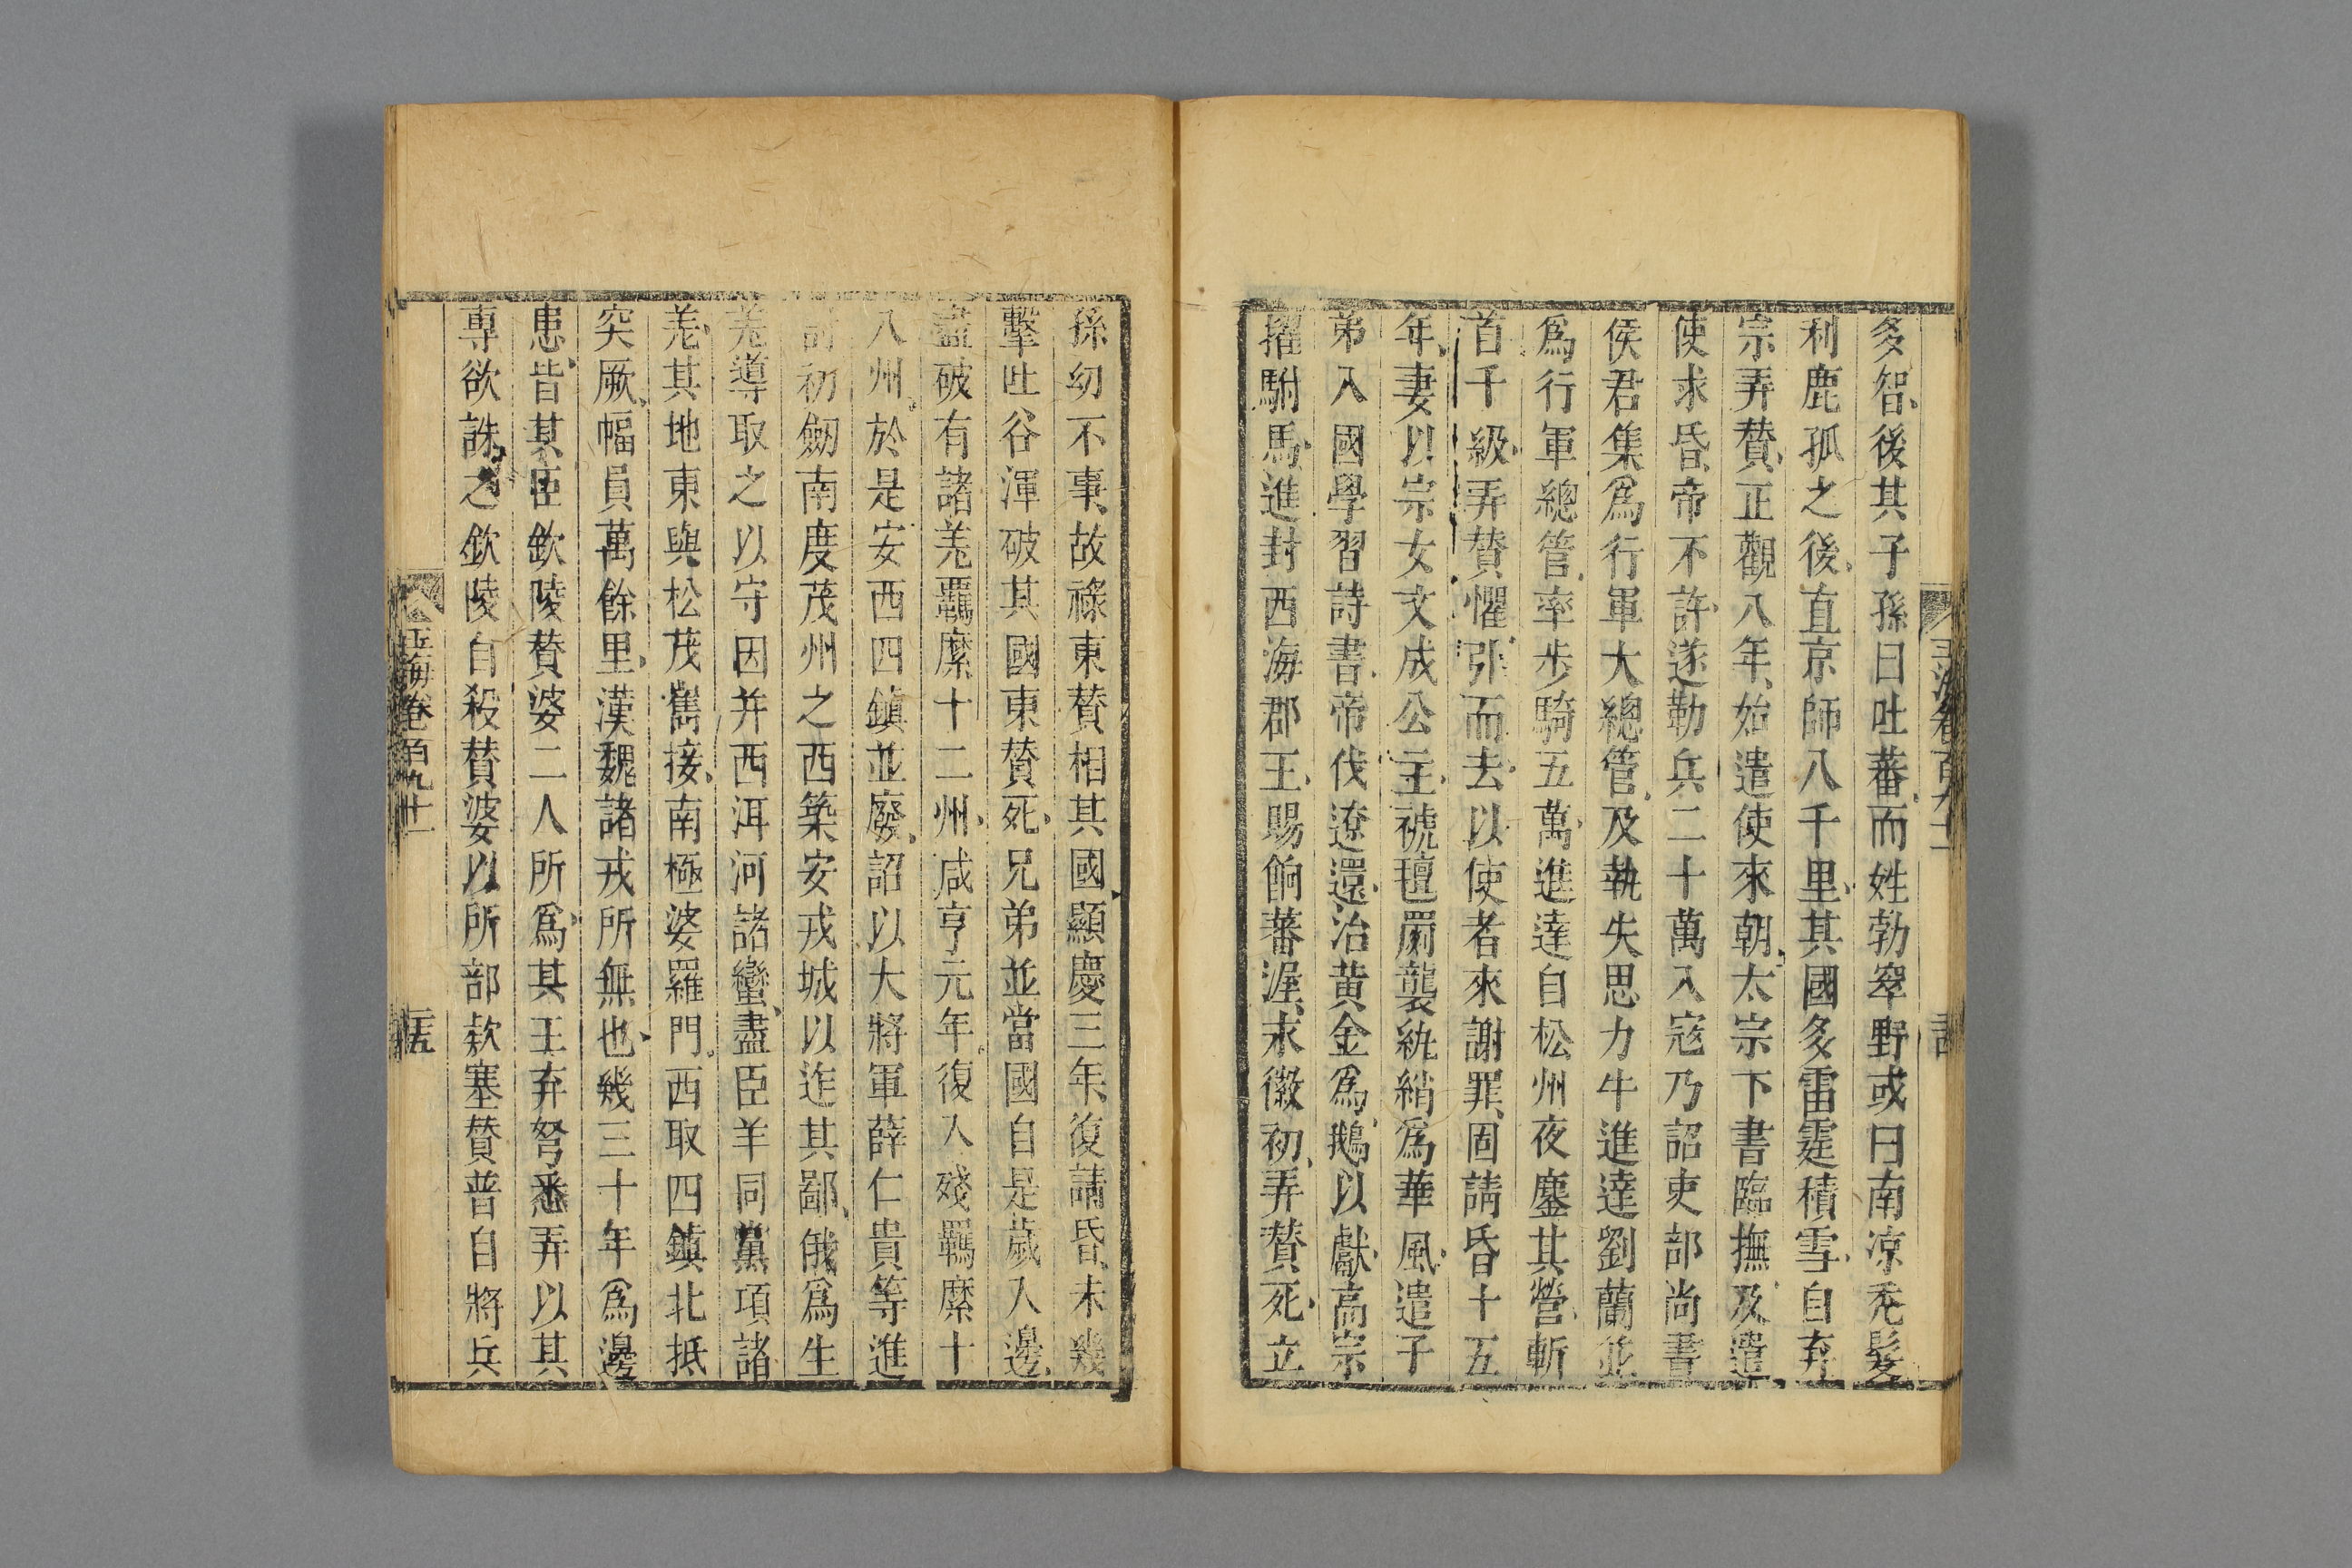 多智後其子孫曰吐蕃而姓勃窣野或曰南凉禿髮
利鹿孤之後直京師八千里其國多雷霆積雪自弃
宗弄賛正觀八年始遣使來朝太宗下書臨撫及遣
使求昏帝不許遂勒兵二十萬入寇乃詔吏部尚書
侯君集爲行軍大總管及執失思力牛進達劉蘭並
爲行軍總管率步騎五萬進達自松州夜鏖其營斬
首千級弄賛懼引而去以使者來謝罪固請昏十五
年妻以宗女文成公主禠氊罽襲紈綃爲華風遣子
弟入國學習詩書帝伐遼還治黄金爲鵝以獻高宗
擢駙馬進封西海郡王賜餉蕃渥永徽初弄賛死立
孫幼不事故祿東賛相其國顯慶三年復請昏未幾
擊吐谷渾破其國東賛死兄弟並當國自是歲入邊
盡破有諸羌羈縻十二州咸亨元年復入殘羈縻十
八州於是安西四鎮並廢詔以大將軍薛仁貴等進
討初劒南度茂州之西築安戎城以迮其鄙俄爲生
羌導取之以守因并西洱河諸蠻盡臣羊同黨項諸
羌其地東與松茂嶲接南極婆羅門西取四鎮北抵
突厥幅員萬餘里漢魏諸戎所無也幾三十年爲邊
患皆其臣欽陵賛婆二人所爲其王弃弩悉弄以其
專欲誅之欽陵自殺賛婆以所部欵塞賛普自將兵
玉海卷百九十一